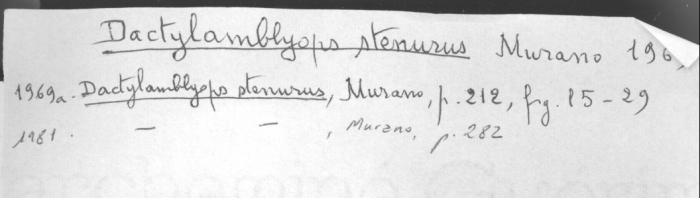 Dactylamblyops stenurus Murano 196
1969a. Dactylamblyops stenurus, Murano, p. 212, fig. 15-29
1981. — — , Murano, p. 282